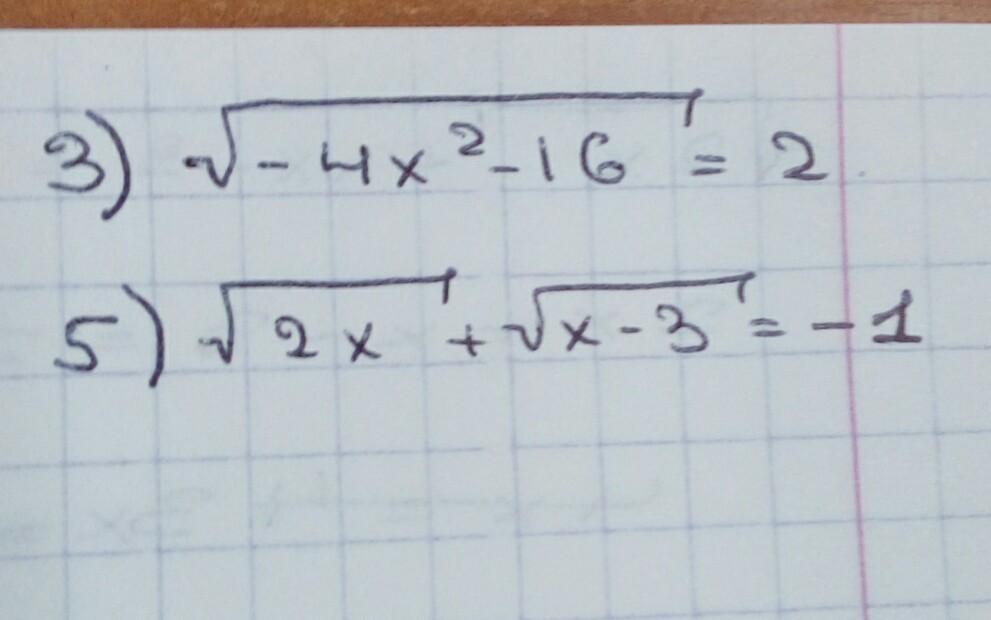 3) √(-4x²-16) = 2
5) √(2x) + √(x-3) = -1